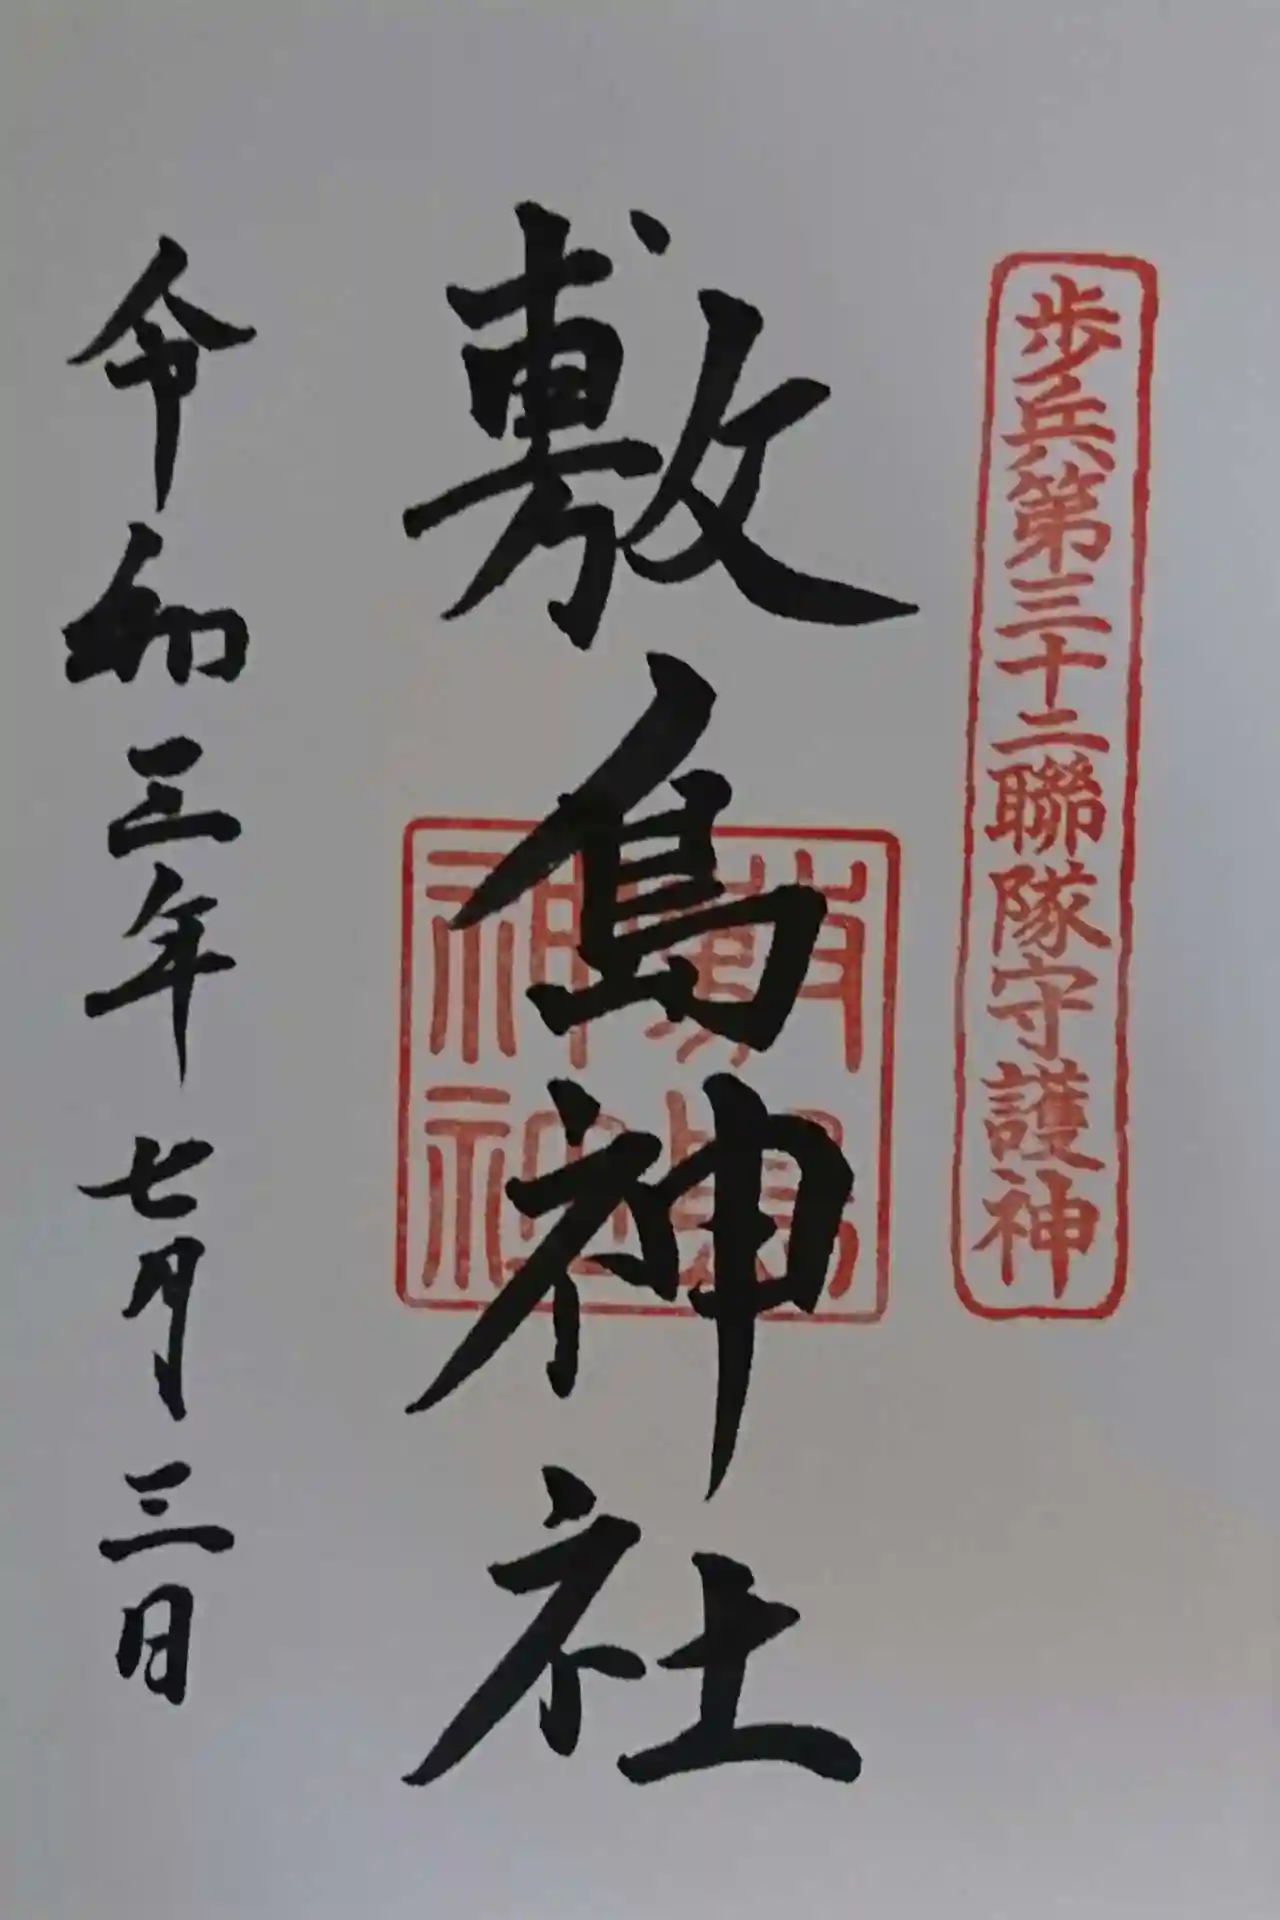 歩兵第三十二聯隊守護神
敷島神社
敷島
神社
令和三年七月三日